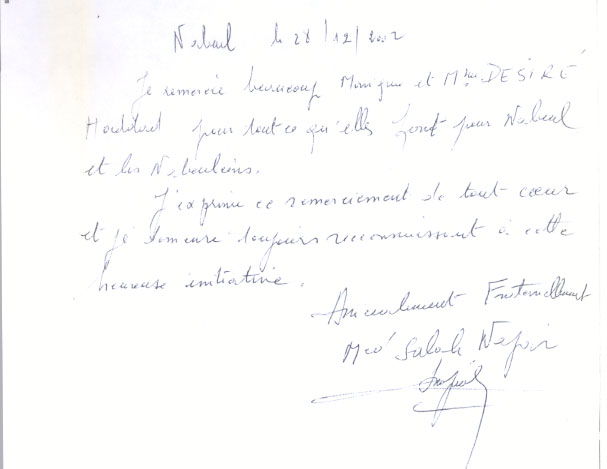 Nabeul le 28/12/2002
Je remercie beaucoup Monique et Mme DESIRÉ
Haddad pour tout ce qu'elles font pour Nabeul
et les Nabeuliens.
J'exprime ce remerciement de tout cœur
et je demeure toujours reconnaissant à cette
heureuse initiative.
Amicalement Fraternellement
Med Salah